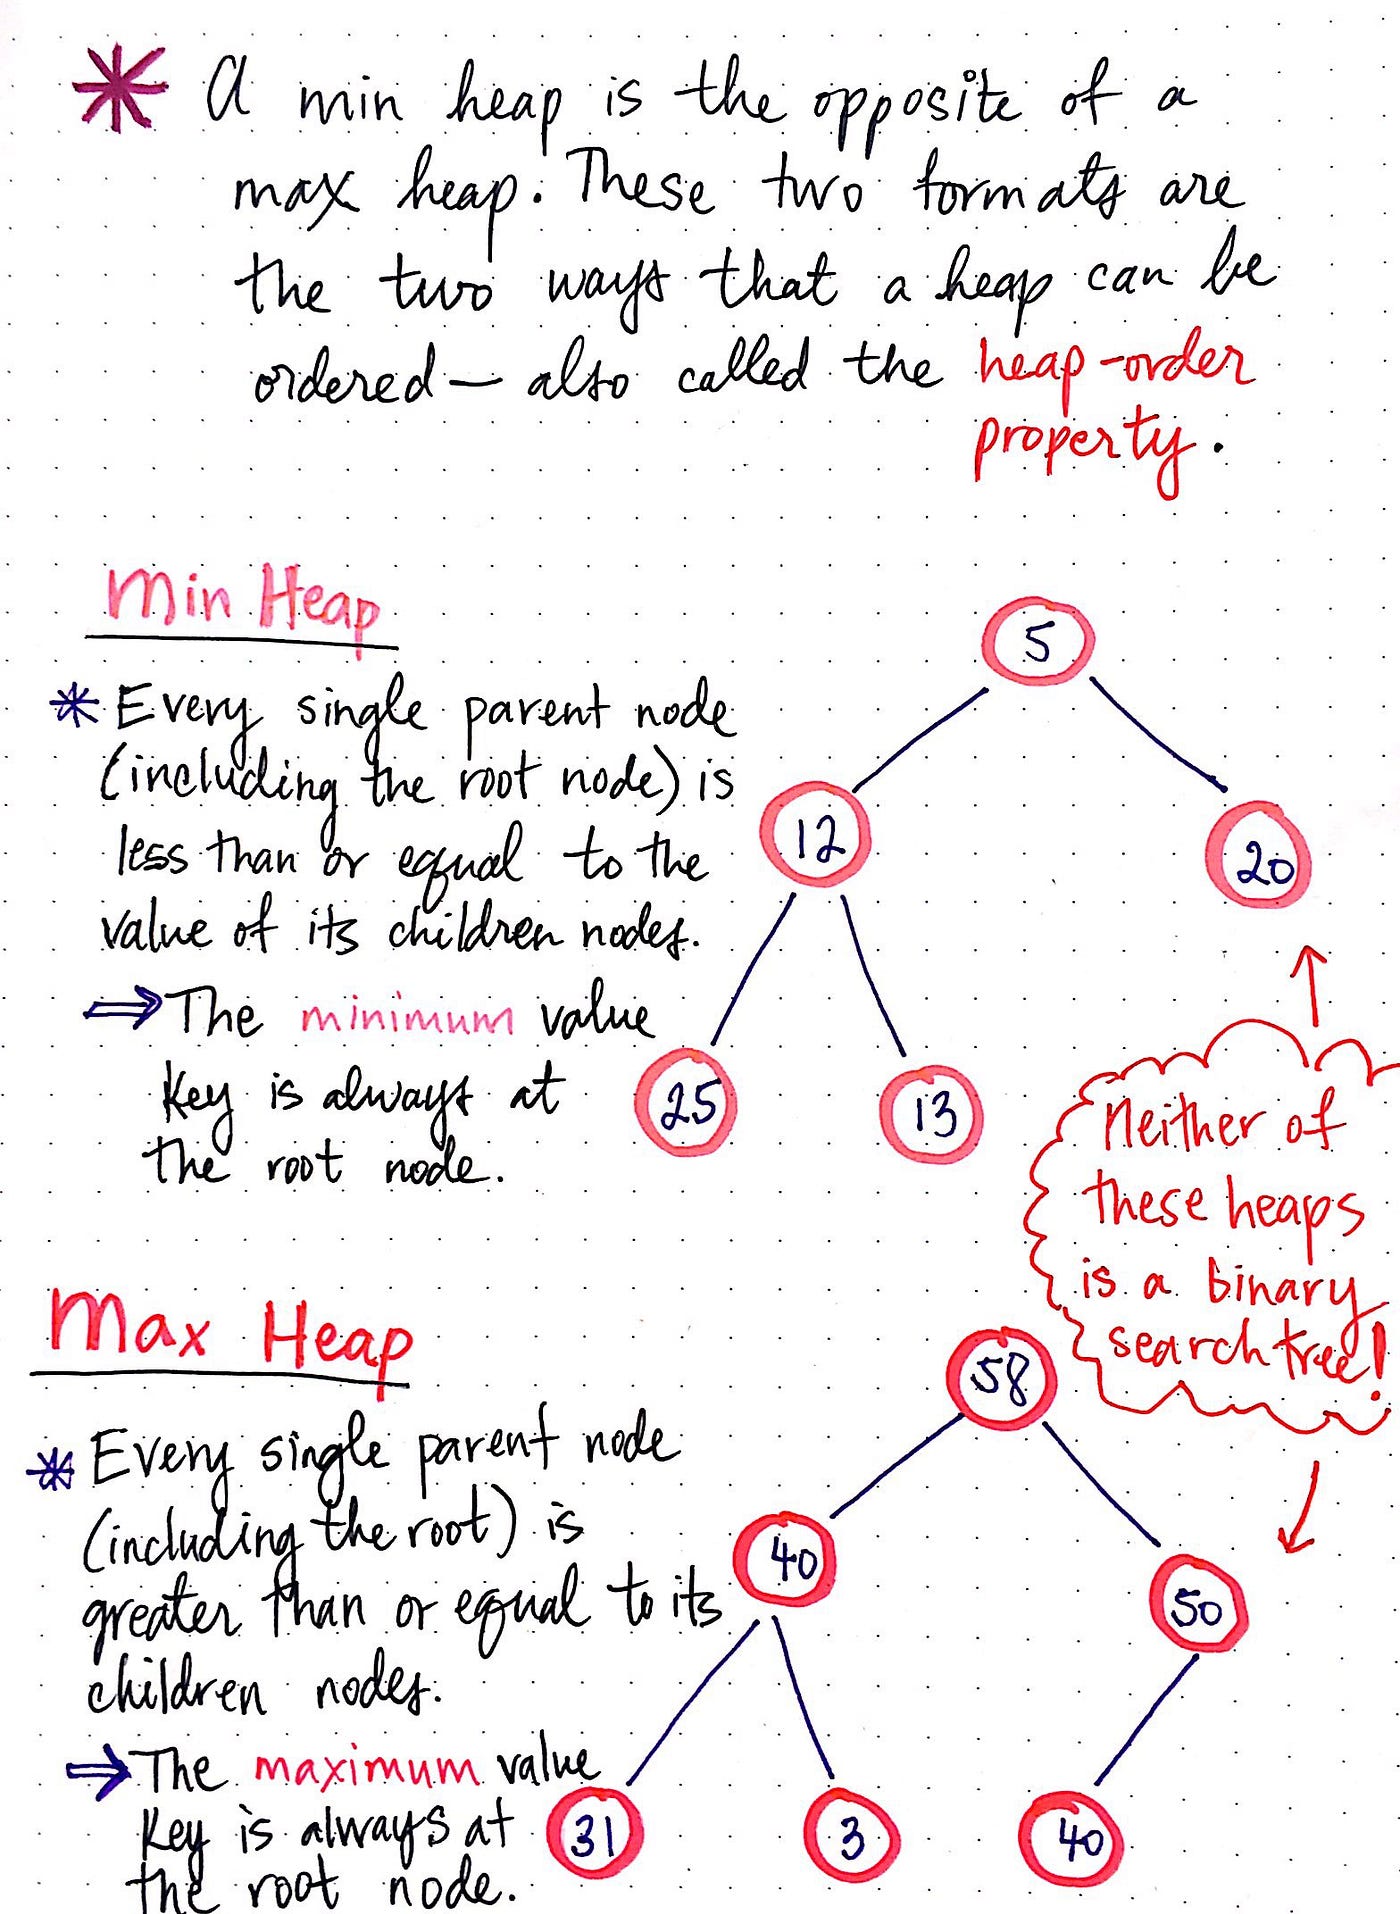 A min heap is the opposite of a
max heap. These two formats are
the two ways that a heap can be
ordered — also called the heap-order
property.
Min Heap
* Every single parent node
(including the root node) is
less than or equal to the
value of its children nodes.
⇒ The minimum value
key is always at
the root node.
5
12
20
25
13
Neither of
these heaps
is a binary
search tree!
Max Heap
* Every single parent node
(including the root) is
greater than or equal to its
children nodes.
⇒ The maximum value
key is always at
the root node.
58
40
50
31
3
40